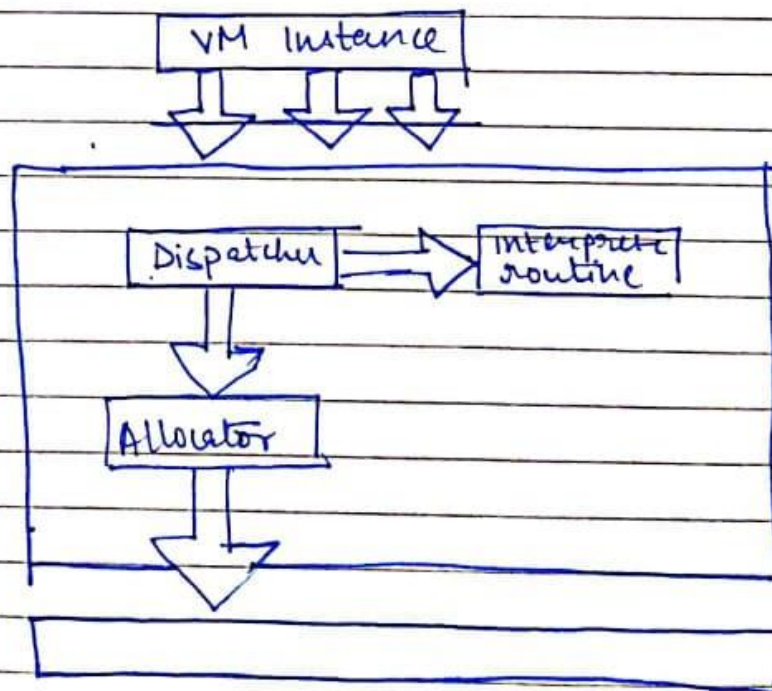 VM Instance
Dispatcher
Interprete
routine
Allocator